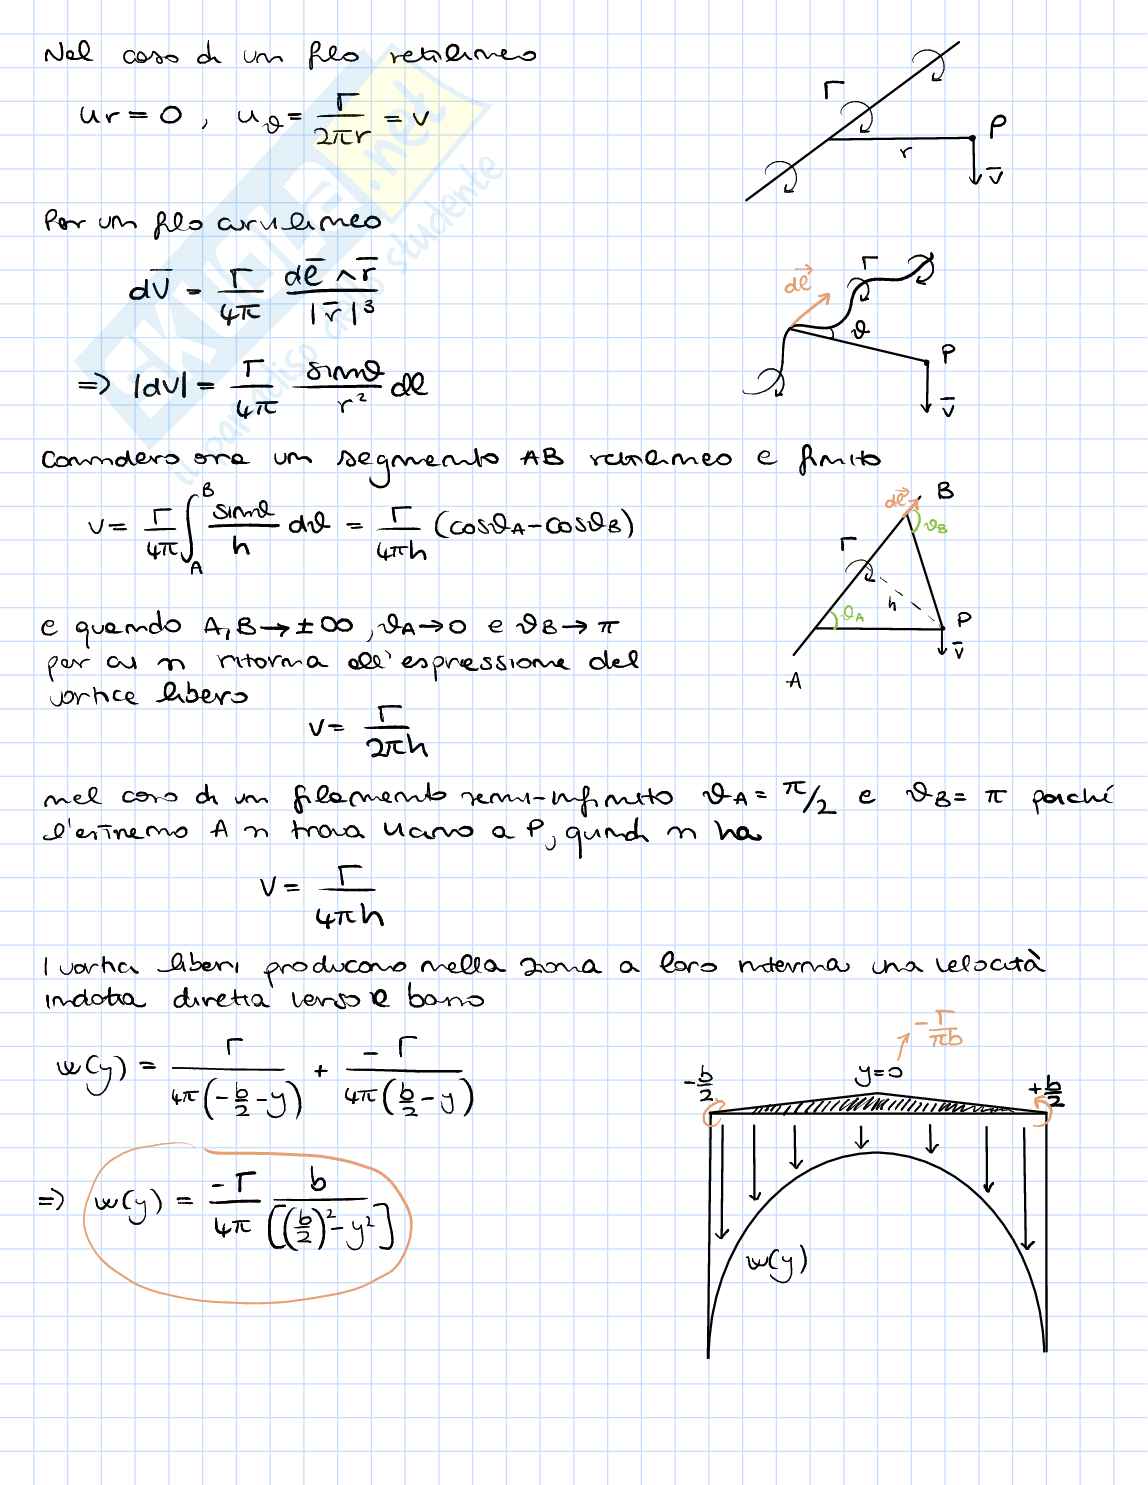 Nel caso di un filo rettilineo
ur = 0 , uϑ = Γ/2πr = v
Γ
P
r
v̄
Per un filo curvilineo
dV̄ = Γ/4π dl̄ ∧ r̄ / |r̄|³
dl⃗
Γ
ϑ
P
v̄
=> |dV| = Γ/4π sinϑ/r² dl
Considero ora un segmento AB rettilineo e finito
v = Γ/4π ∫_A^B sinϑ/h dϑ = Γ/4πh (cosϑA - cosϑB)
dl⃗
B
ϑB
Γ
h
ϑA
P
v̄
A
e quando A,B → ± ∞ , ϑA → 0 e ϑB → π
per cui si ritorna all'espressione del
vortice libero
v = Γ/2πh
nel caso di un filamento semi-infinito ϑA = π/2 e ϑB = π perché
l'estremo A si trova vicino a P, quindi si ha
V = Γ/4πh
I vortici liberi producono nella zona a loro interna una velocità
indotta diretta verso il basso
w(y) = Γ/4π(-b/2 - y) + -Γ/4π(b/2 - y)
-Γ/πb
-b/2
y=0
+b/2
=> w(y) = -Γ/4π b/[(b/2)² - y²]
w(y)
SKUOLA.net
il paradiso dello studente